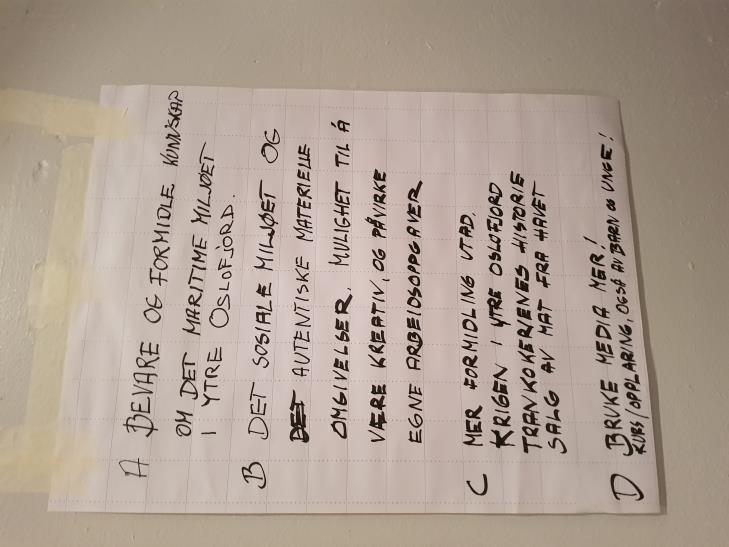 A BEVARE OG FORMIDLE KUNNSKAP
OM DET MARITIME MILJØET
I YTRE OSLOFJORD.
B DET SOSIALE MILJØET OG
DET AUTENTISKE MATERIELLE
OMGIVELSER. MULIGHET TIL Å
VÆRE KREATIV, OG PÅVIRKE
EGNE ARBEIDSOPPGAVER
C MER FORMIDLING UTAD.
KRIGEN I YTRE OSLOFJORD
TRANKOKERIENES HISTORIE
SALG AV MAT FRA HAVET
D BRUKE MEDIA MER!
KURS/OPPLÆRING, OGSÅ AV BARN OG UNGE!